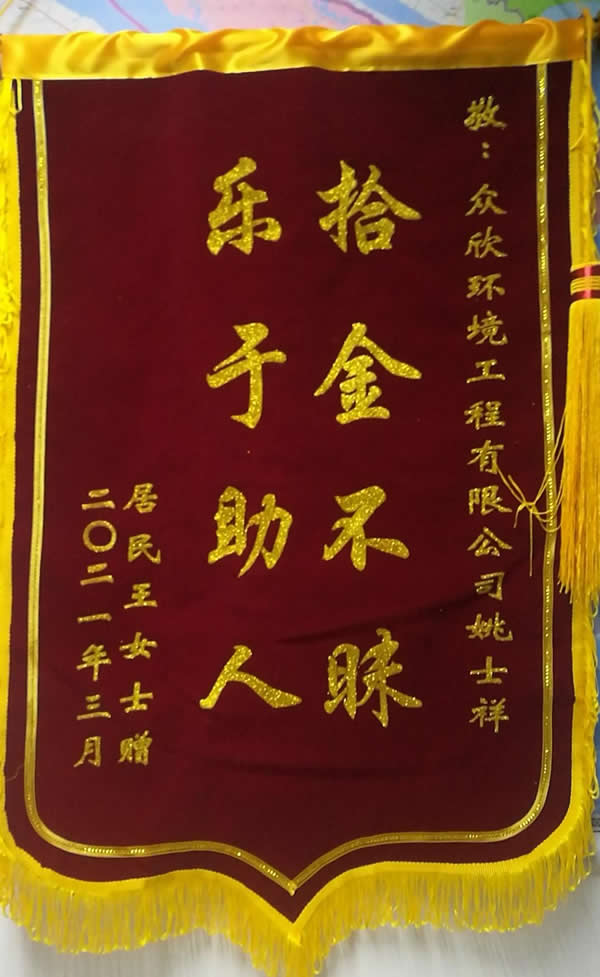 敬：众欣环境工程有限公司姚士祥
拾金不昧
乐于助人
居民王女士赠
二〇二一年三月